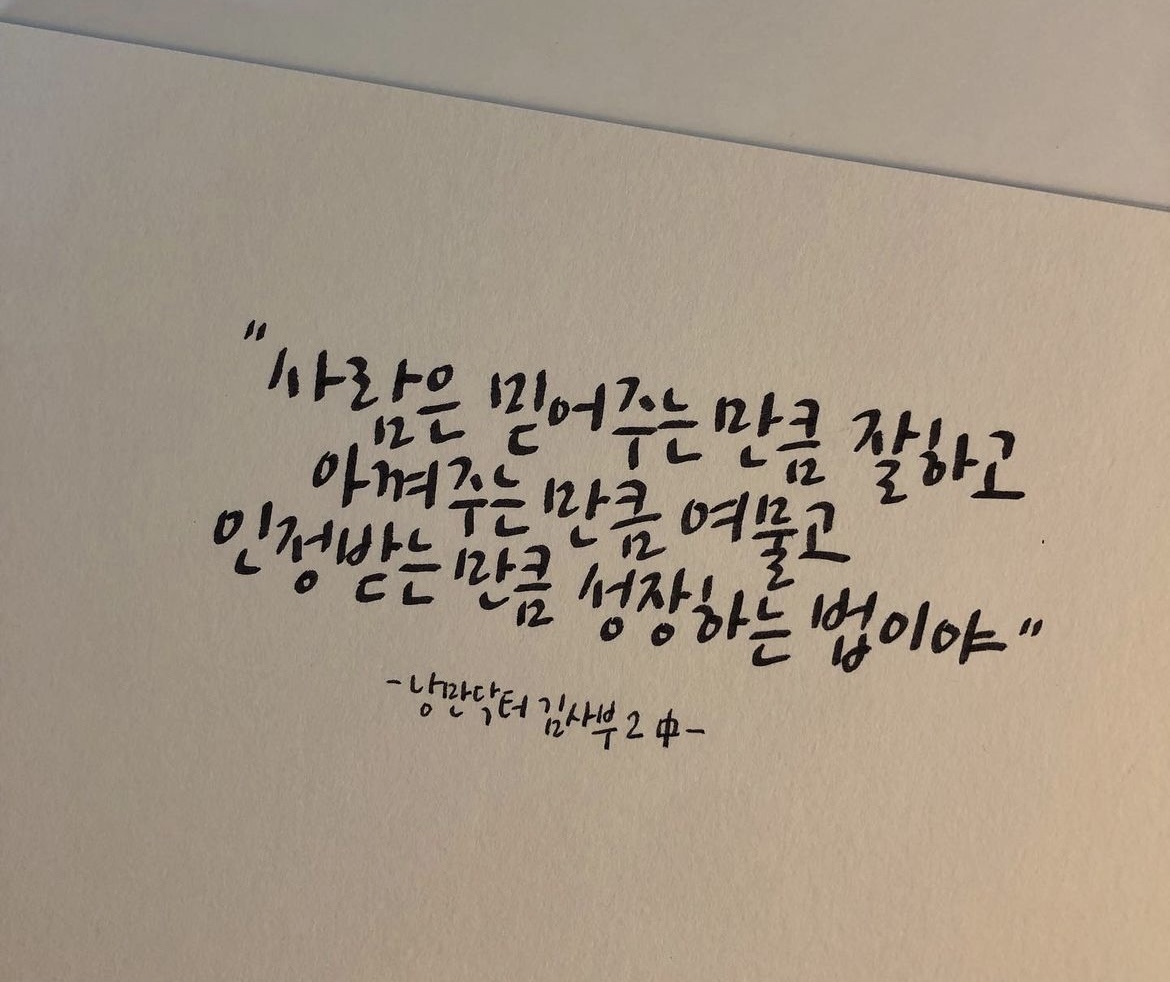 "사람은 믿어주는 만큼 잘하고
아껴주는 만큼 여물고
인정받는 만큼 성장하는 법이야"
-낭만닥터 김사부 2 中-